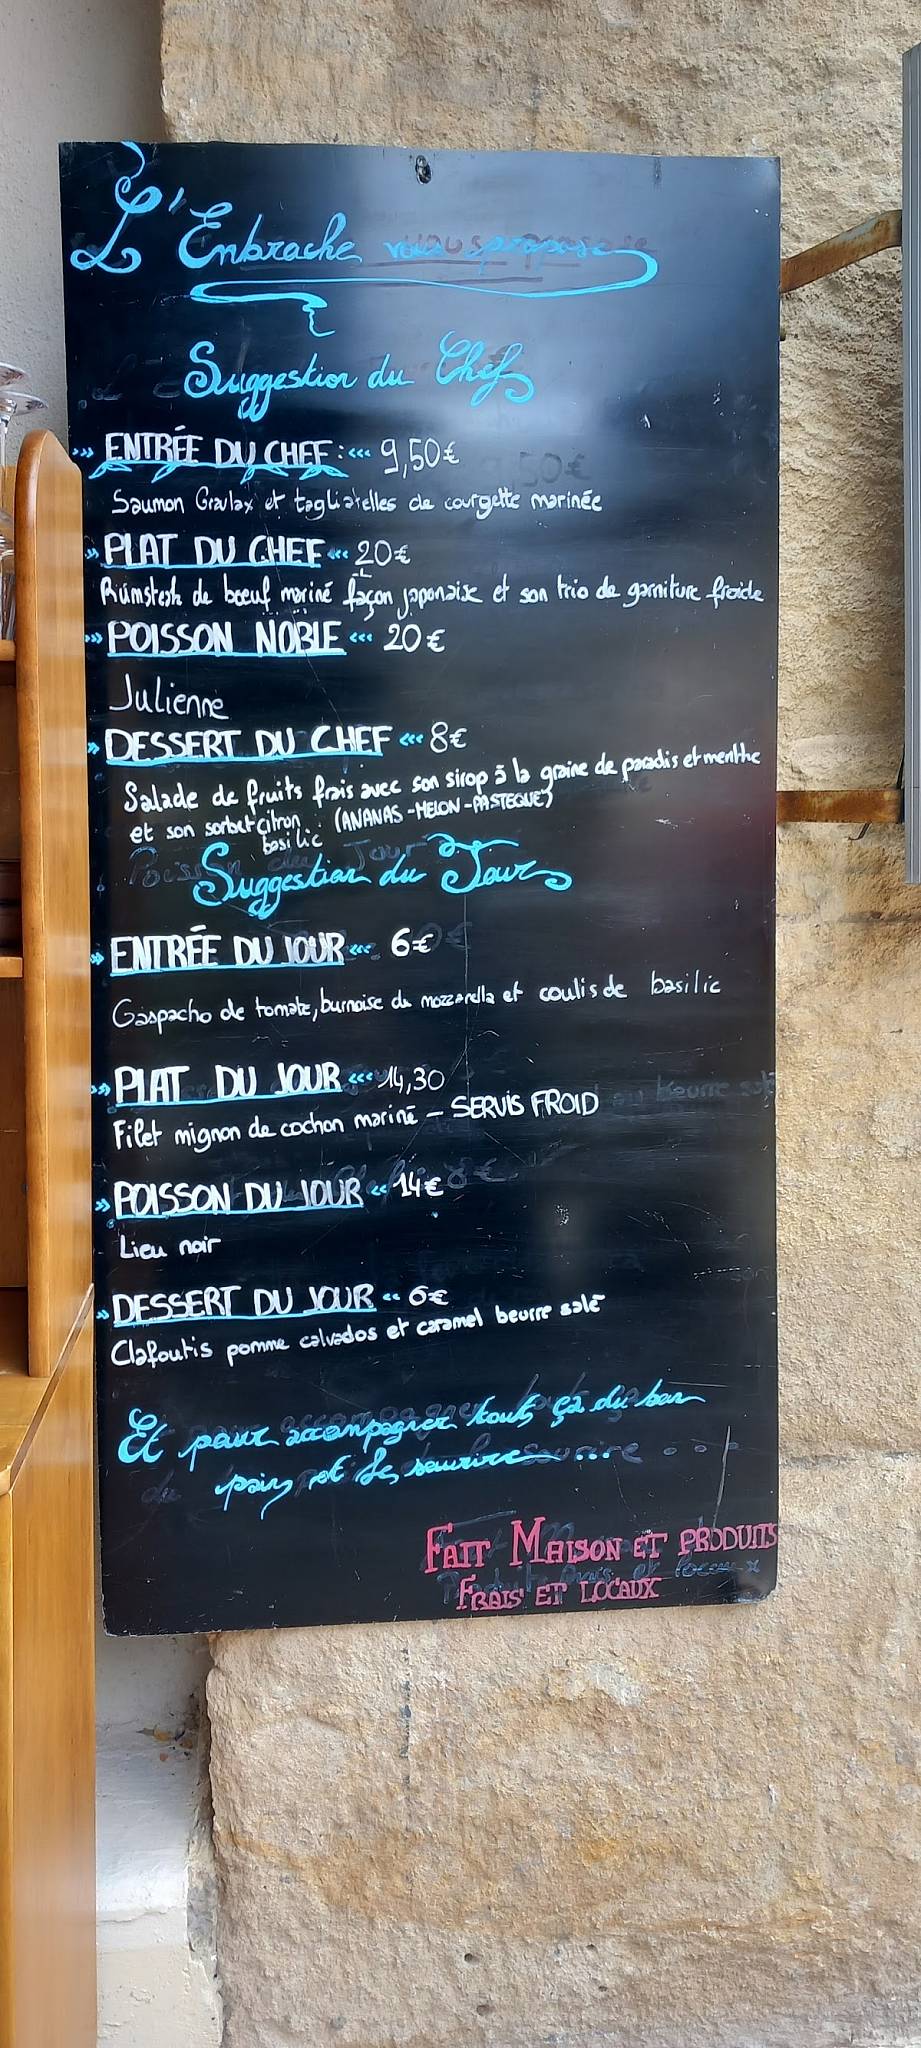 L'Enbrache vous propose
Suggestion du Chef
››› ENTRÉE DU CHEF : ‹‹‹ 9,50€
Saumon Gravlax et tagliatelles de courgette marinée
›› PLAT DU CHEF ‹‹‹ 20€
Rumsteak de boeuf mariné façon japonaise et son trio de garniture froide
››› POISSON NOBLE ‹‹‹ 20€
Julienne
›› DESSERT DU CHEF ‹‹‹ 8€
Salade de fruits frais avec son sirop à la graine de paradis et menthe
et son sorbet citron (ANANAS-MELON-PASTEQUE)
basilic
Suggestion du Jour
›› ENTRÉE DU JOUR ‹‹‹ 6€
Gaspacho de tomate, de mozzarella et coulis de basilic
››› PLAT DU JOUR ‹‹‹ 14,30
Filet mignon de cochon mariné - SERVIS FROID
›› POISSON DU JOUR ‹‹ 14€
Lieu noir
›› DESSERT DU JOUR ‹‹ 6€
Clafoutis pomme calvados et caramel beurre salé
Et pour accompagner tout ça du bon
pain et le sourire ...
FAIT MAISON ET PRODUITS
FRAIS ET LOCAUX